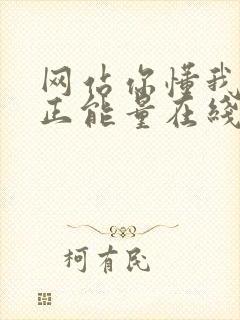 网站你懂我
正能量在线
柯有民